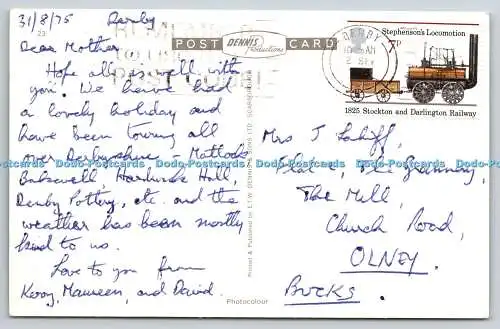 31/8/75 Derby
Dear Mother,
Hope all is well with
you. We have had
a lovely holiday and
have been touring all
over Derbyshire, Matlock,
Bakewell, Hardwick Hall,
Denby Pottery, etc. and the
weather has been mostly
kind to us.
Love to you from
Kerry, Maureen, and David.
POST CARD
DENNIS
Productions
Printed & Published by E.T.W. DENNIS & SONS LTD. SCARBOROUGH
Photocolour
DERBY
Stephenson's Locomotion
7P
1825 Stockton and Darlington Railway
Mrs J
Flat 2, The Granary,
The Mill,
Church Road,
OLNEY,
BUCKS.
Dodo-Postcards Dodo-Postcards Dodo-Postcards Dodo-Postcards Dodo-Postcards